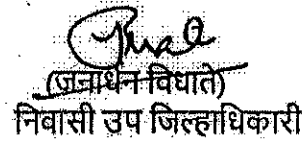 (जनार्धन विधाते)
निवासी उप जिल्हाधिकारी